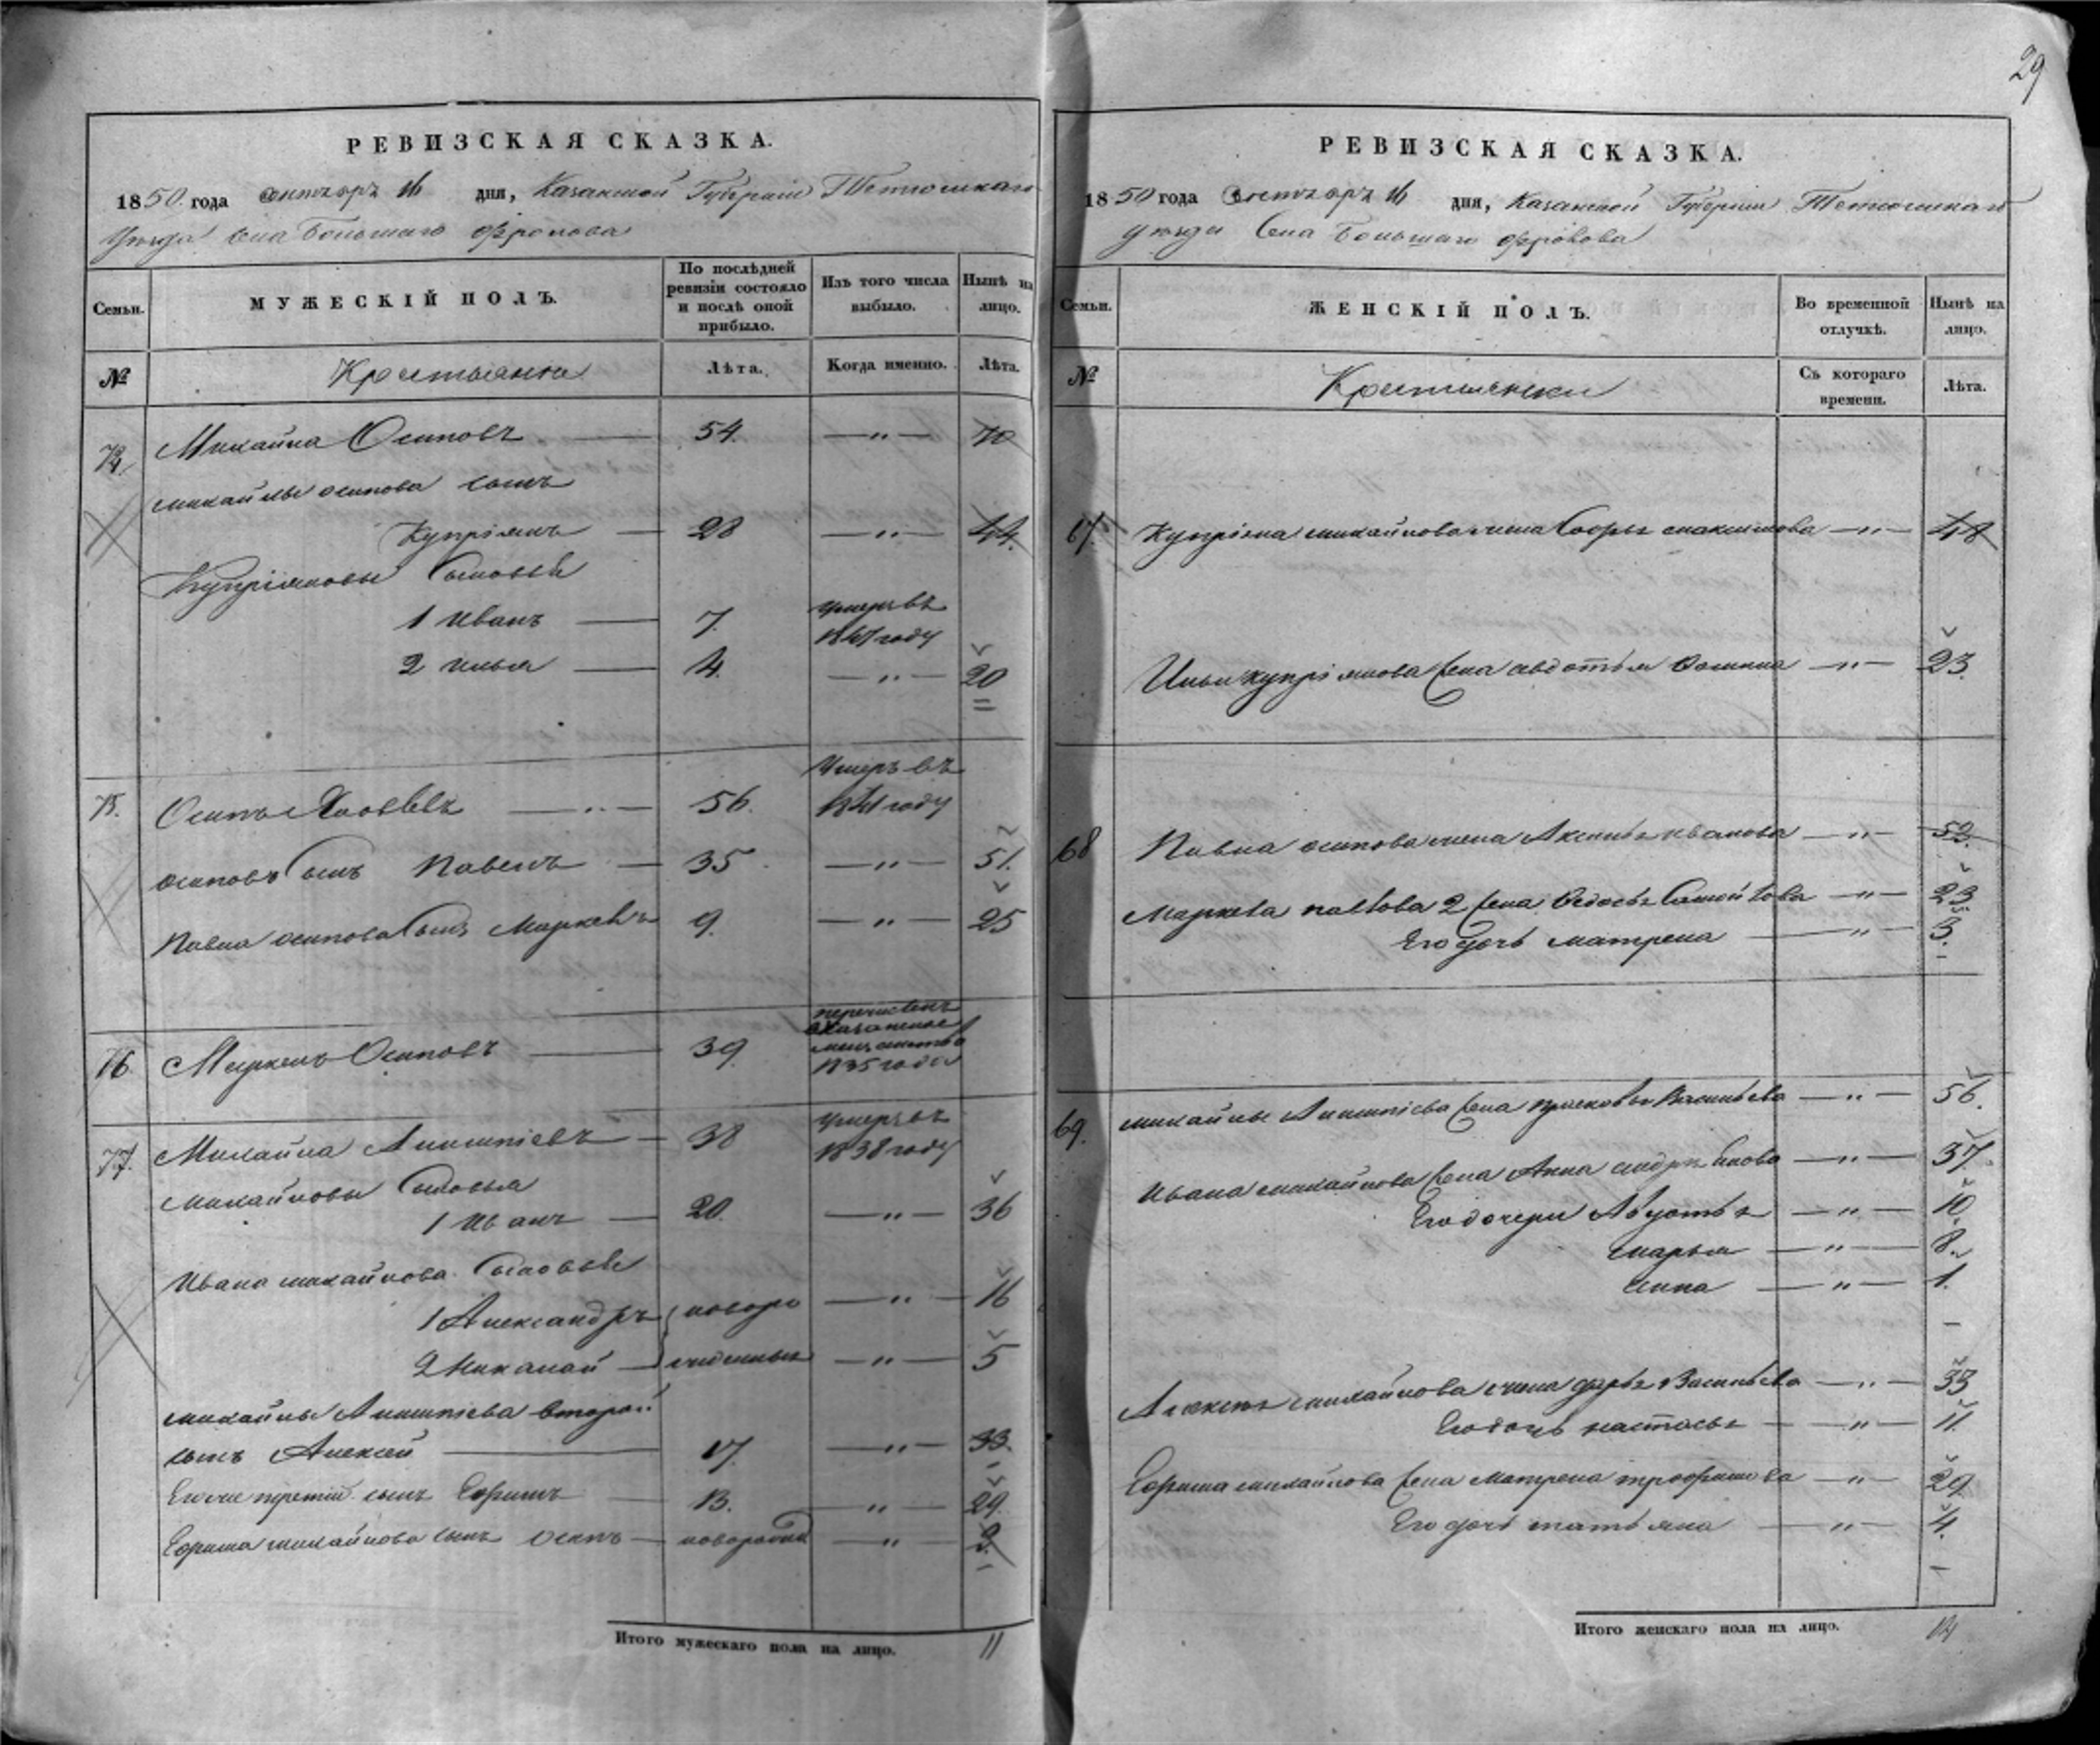 29
РЕВИЗСКАЯ СКАЗКА.
1850 года октября 16 дня, Казанской Губернии Тетюшскаго
уезда села Большаго Фролова
Семьи.
МУЖЕСКІЙ ПОЛЪ.
По послѣдней ревизіи состояло и послѣ оной прибыло.
Изъ того числа выбыло.
Нынѣ на лицо.
№
Крестьяне
Лѣта.
Когда именно.
Лѣта.
74. Михайла Осиповъ 54. — " — 70
Михайлы Осипова сынъ
Купріянъ — 28 — " — 44.
Купріяновы Сыновья
1 Иванъ — 7. умеръ въ
1841 году
2 Илья — 4. — " — 20
75. Осипъ Яковлевъ — " — 56. Умеръ въ
1841 году
Осиповъ Сынъ Павелъ — 35 — " — 51.
Павла Осипова Сынъ Маркелъ 9. — " — 25
76. Маркелъ Осиповъ — 39. перечисленъ
в Казанское
мещанство
1835 года
77. Михайла — 38 умеръ въ
1838 году
Михайловы Сыновья
1 Иванъ — 20. — " — 36
Ивана Михайлова Сыновья
1 Александръ новоро — " — 16
2 Николай — жденные — " — 5
Михайлы второй
сынъ Алексей — 17. — " — 33.
Его же третій сынъ Ефимъ — 13. — " — 29.
Ефима Михайлова сынъ Осипъ — новорожд — " —
Итого мужескаго пола на лицо. 11
РЕВИЗСКАЯ СКАЗКА.
1850 года октября 16 дня, Казанской Губернии Тетюшскаго
уезда Села Большаго Фролова
Семьи.
ЖЕНСКІЙ ПОЛЪ.
Во временной отлучкѣ.
Нынѣ на лицо.
№
Крестьянки
Съ котораго времени.
Лѣта.
67. Купріяна Михайлова жена Софья Максимова — " — 48
Ильи Купріянова жена Авдотья Осипова — " — 23.
68 Павла Осипова жена Аксинья Иванова — " — 52.
Маркела Павлова 2 жена Федосья Самойлова — " — 23.
Его дочь Матрена — " — 5.
69. Михайлы жена Прасковья Васильева — " — 56.
Ивана Михайлова жена Анна — " — 37.
Его дочери Авдотья — " — 10
Марья — " — 8.
Анна — " — 1.
Алексея Михайлова жена Дарья Васильева — " — 33
Его дочь Настасья — " — 11.
Ефима Михайлова жена Матрена Трофимова — " — 29.
Его дочь Татьяна — " — 4.
Итого женскаго пола на лицо. 14